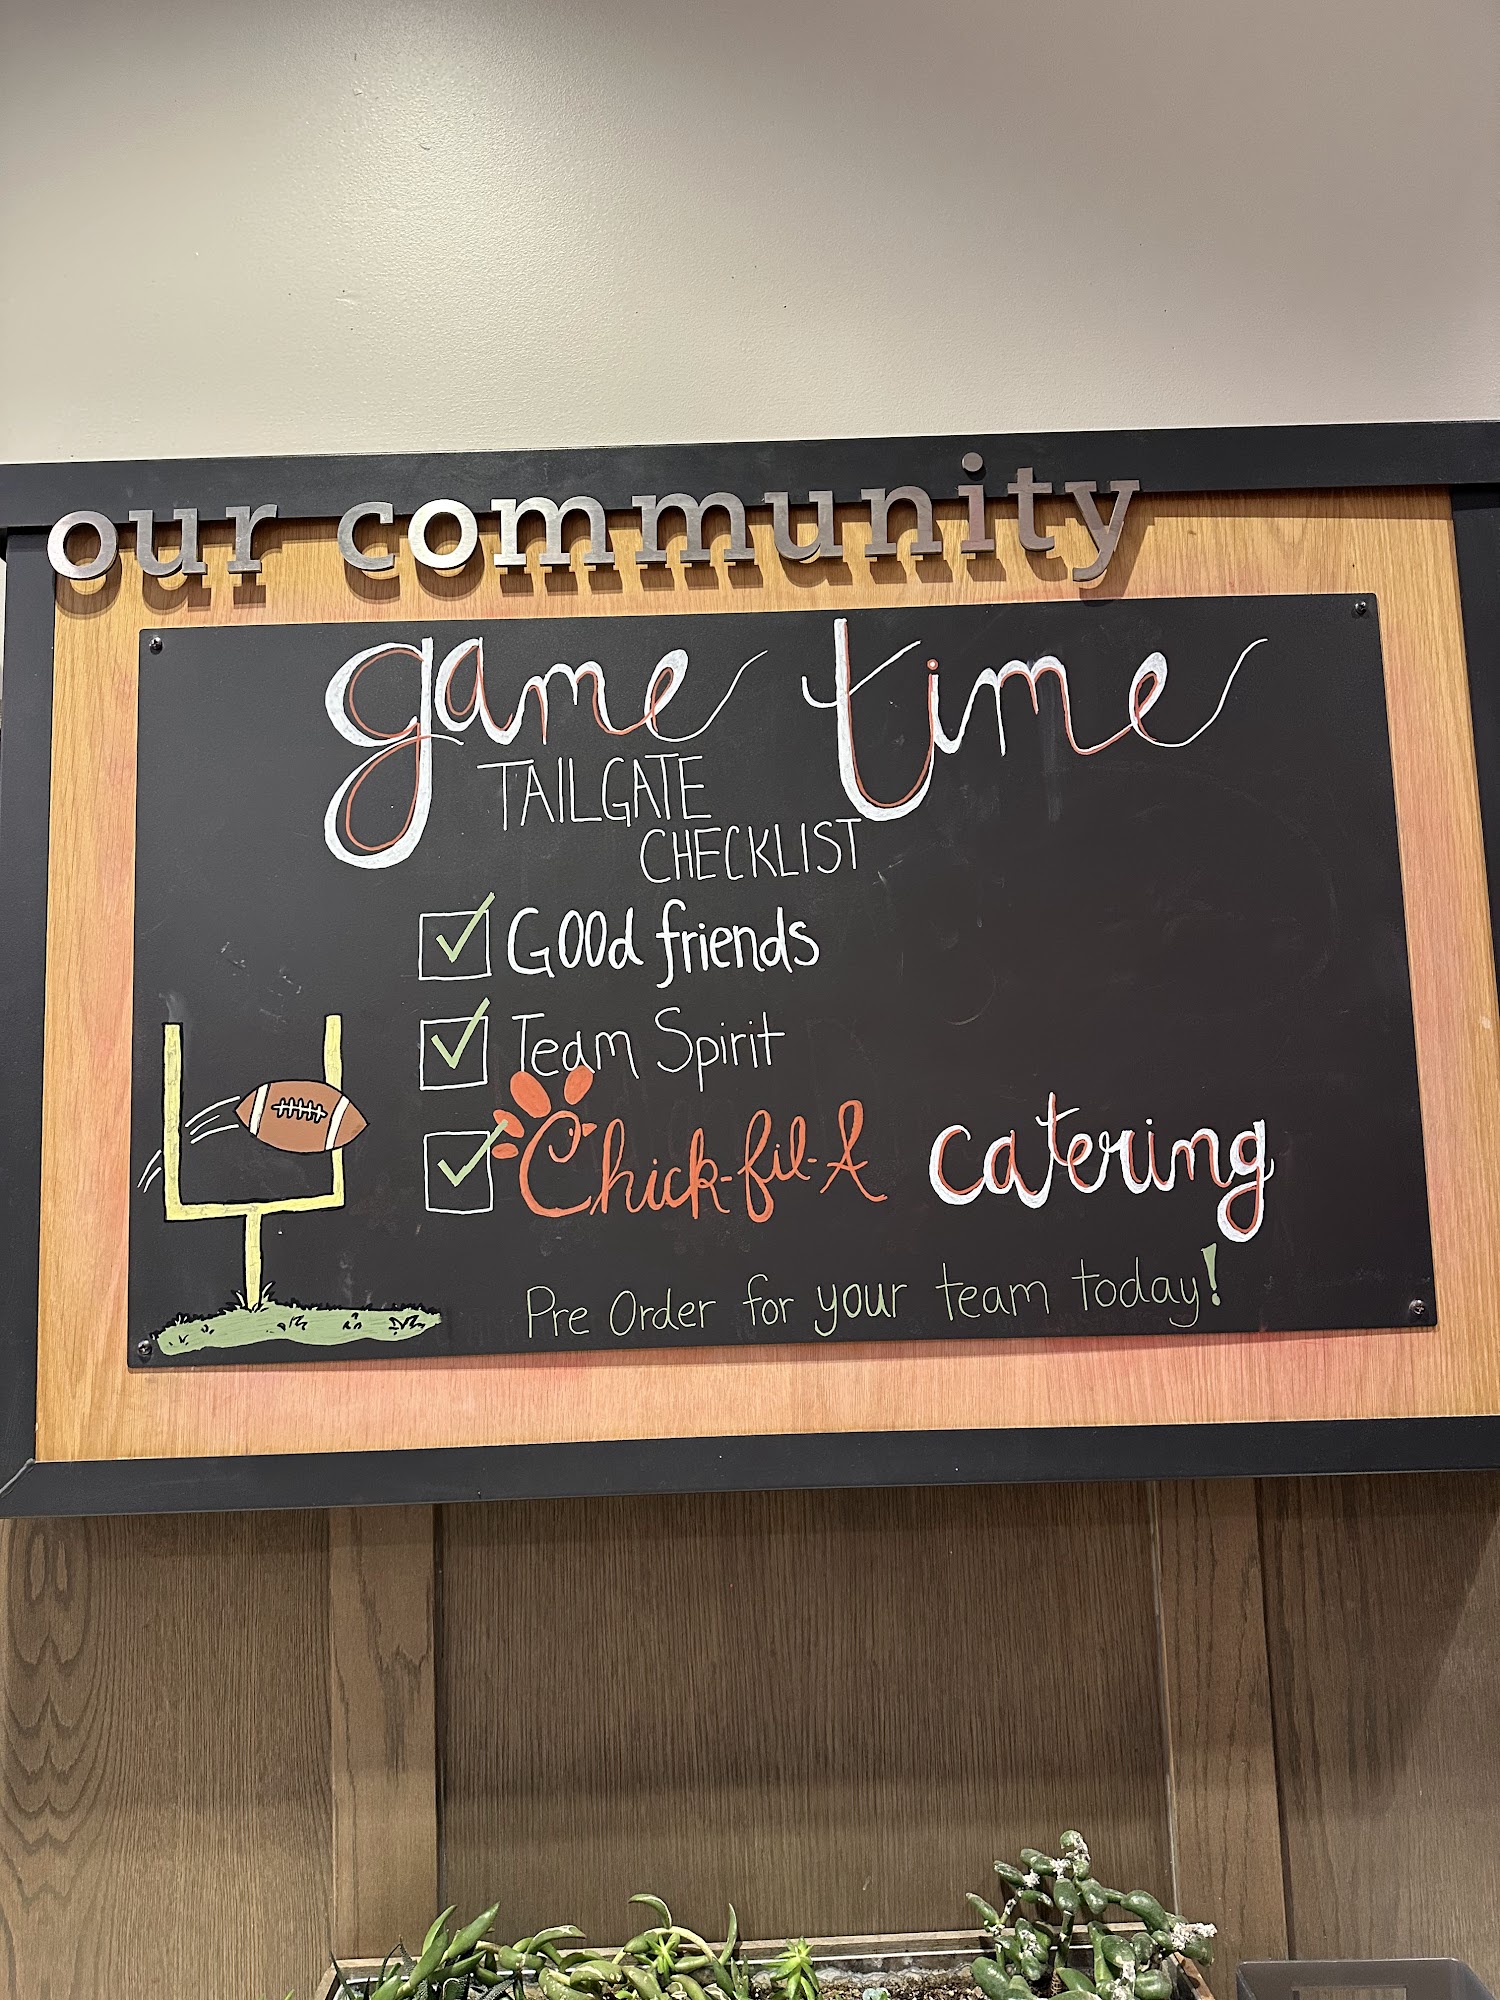 our community
game time
TAILGATE
CHECKLIST
Good friends
Team Spirit
Chick-fil-A catering
Pre Order for your team today!